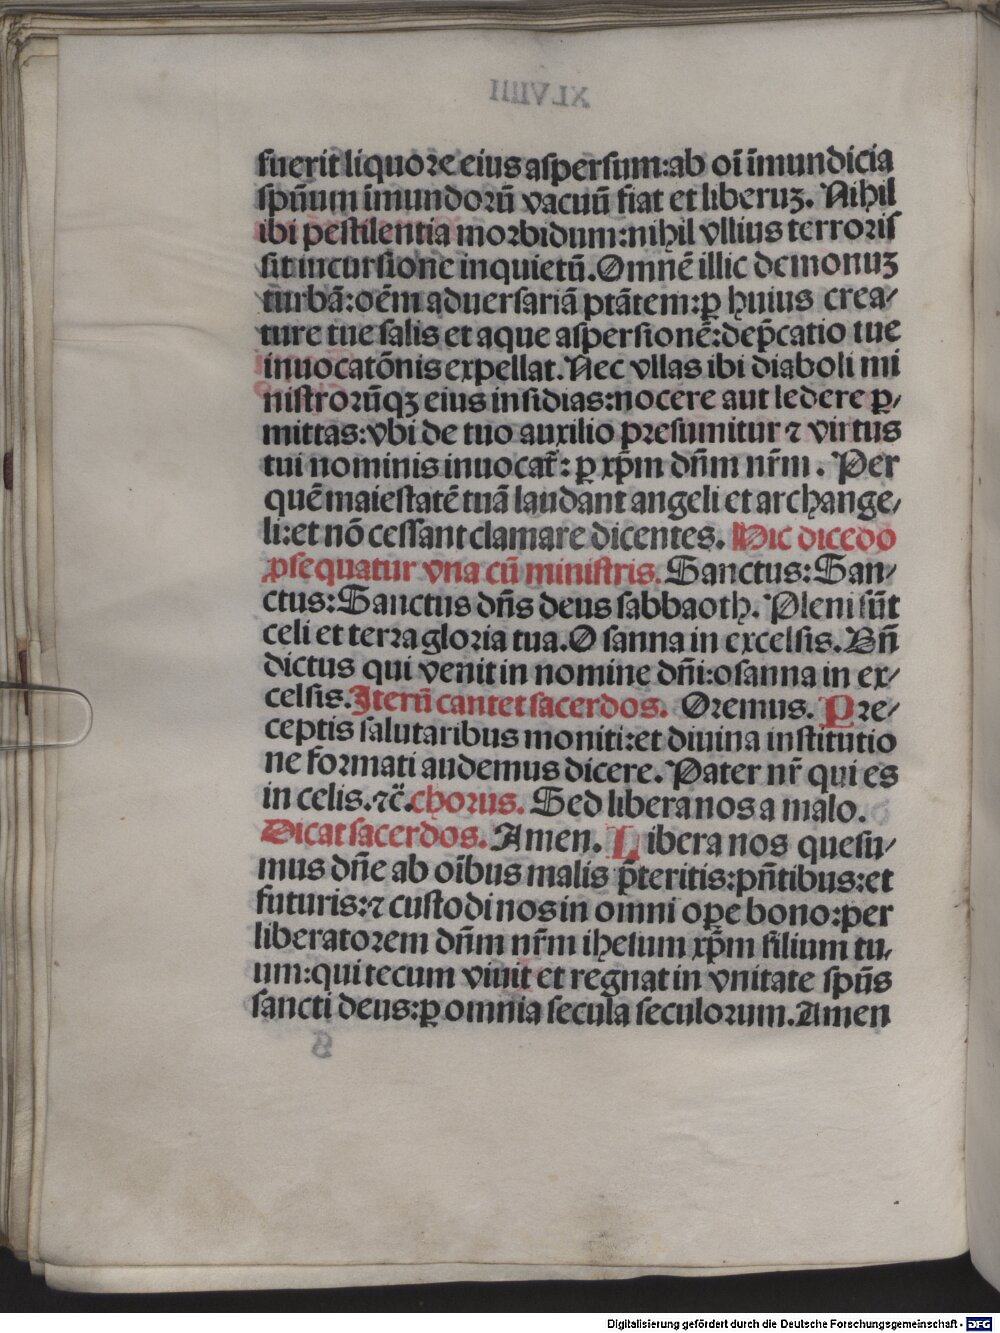 fuerit liquore eius aspersum:ab oī īmundicia
spūum īmundorū vacuū fiat et liberuꝫ. Nihil
ibi pestilentia morbidum:nihil vllius terroris
sit incursione inquietū. Omnē illic demonuꝫ
turbā:oēm aduersariā ptātem:ꝑ huius crea⸗
ture tue salis et aque aspersionē:dep̄catio tue
inuocatōnis expellat. Nec vllas ibi diaboli mi
nistrorūqꝫ eius insidias:nocere aut ledere ꝑ⸗
mittas:vbi de tuo auxilio presumitur ⁊ virtus
tui nominis inuocat̄: ꝑ xp̄m dn̄m nr̄m. Per
quē maiestatē tuā laudant angeli et archange⸗
li:et nō cessant clamare dicentes. Hic dicēdo
ꝓsequatur vna cū ministris. Sanctus: San⸗
ctus: Sanctus dn̄s deus sabbaoth. Pleni sūt
celi et terra gloria tua. O sanna in excelsis. Bn̄
dictus qui venit in nomine dn̄i:osanna in ex⸗
celsis. Iterū cantet sacerdos. Oremus. Pre⸗
ceptis salutaribus moniti:et diuina institutio
ne formati audemus dicere. Pater nr̄ qui es
in celis.⁊c̄. chorus. Sed libera nos a malo.
Dicat sacerdos. Amen. Libera nos quesu⸗
mus dn̄e ab oībus malis p̄teritis:pn̄tibus:et
futuris:⁊ custodi nos in omni oꝑe bono:per
liberatorem dn̄m nr̄m ihesum xp̄m filium tu⸗
um:qui tecum viuit et regnat in vnitate spūs
sancti deus:ꝑ omnia secula seculorum. Amen
Digitalisierung gefördert durch die Deutsche Forschungsgemeinschaft - DFG